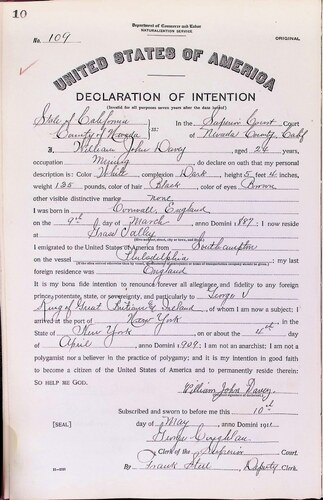 10
Department of Commerce and Labor
NATURALIZATION SERVICE
No. 109
ORIGINAL
UNITED STATES OF AMERICA
DECLARATION OF INTENTION
(Invalid for all purposes seven years after the date hereof)
State of California
County of Nevada
ss:
In the Superior Court Court
of Nevada County, Calif
I, William John Davey, aged 24 years,
occupation Mining, do declare on oath that my personal
description is: Color White, complexion Dark, height 5 feet 4 inches,
weight 135 pounds, color of hair Black, color of eyes Brown
other visible distinctive marks none
I was born in Cornwall, England
on the 9th day of March, anno Domini 1887; I now reside
at Grass Valley
I emigrated to the United States of America from Southampton
on the vessel Philadelphia; my last
foreign residence was England
It is my bona fide intention to renounce forever all allegiance and fidelity to any foreign
prince, potentate, state, or sovereignty, and particularly to George V
King of Great Britain & Ireland, of whom I am now a subject; I
arrived at the port of New York, in the
State of New York on or about the 4th day
of April, anno Domini 1909; I am not an anarchist; I am not a
polygamist nor a believer in the practice of polygamy; and it is my intention in good faith
to become a citizen of the United States of America and to permanently reside therein:
SO HELP ME GOD.
William John Davey
Subscribed and sworn to before me this 10th
[SEAL]
day of May, anno Domini 1911
Clerk of the Superior Court.
By Frank Steel, Deputy Clerk.